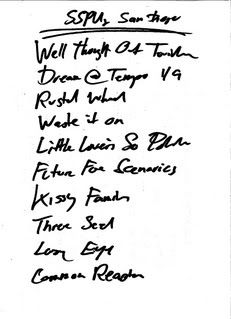 SSPU, San Diego
Well Thought Out Twinkles
Dream @ Tempo 119
Rusted Wheel
Waste it on
Little Lovers So Polite
Future Foe Scenarios
Kissing Families
Three Seed
Lazy Eye
Common Reactor